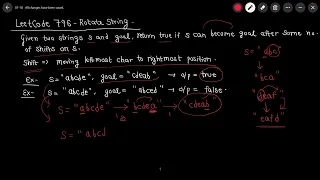 LeetCode 796 - Rotate String -
Given two strings s and goal, return true if s can become goal, after some no.
of shifts on s.
Shift => moving leftmost char to rightmost position.
Ex- s = "abcde", goal = "cdeab" → o/p = true
Ex- s = "abcde", goal = "abced" → o/p = false.
S = "abcde" → "bcdea" → "cdeab"
S = "abcd
S = "abc"
"bca"
"deaf"
"eafd"